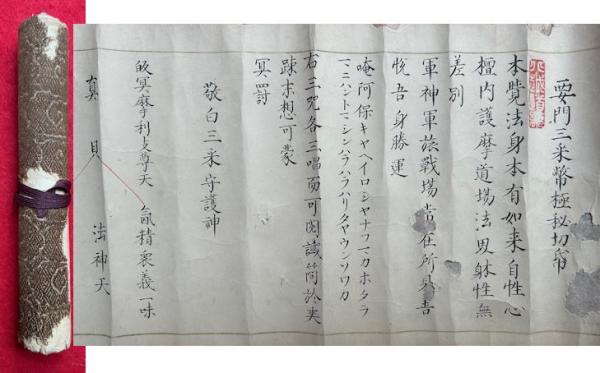 要門三采幣極秘切帋
本覺法身本有如来自性心
檀内護摩道場法男躰性無
差別
軍神軍旅戦場皆在所具吾
悦吾身勝運
唵阿保キヤヘイロシヤナウマカホタラ
マニハントマシンハラハラハリタヤウンソワカ
右三咒各三唱而可図議簡於
疎末想可蒙
冥罸
敬白三采守護神
摩利支尊天 氣精衆義一味
真 貝 法神天